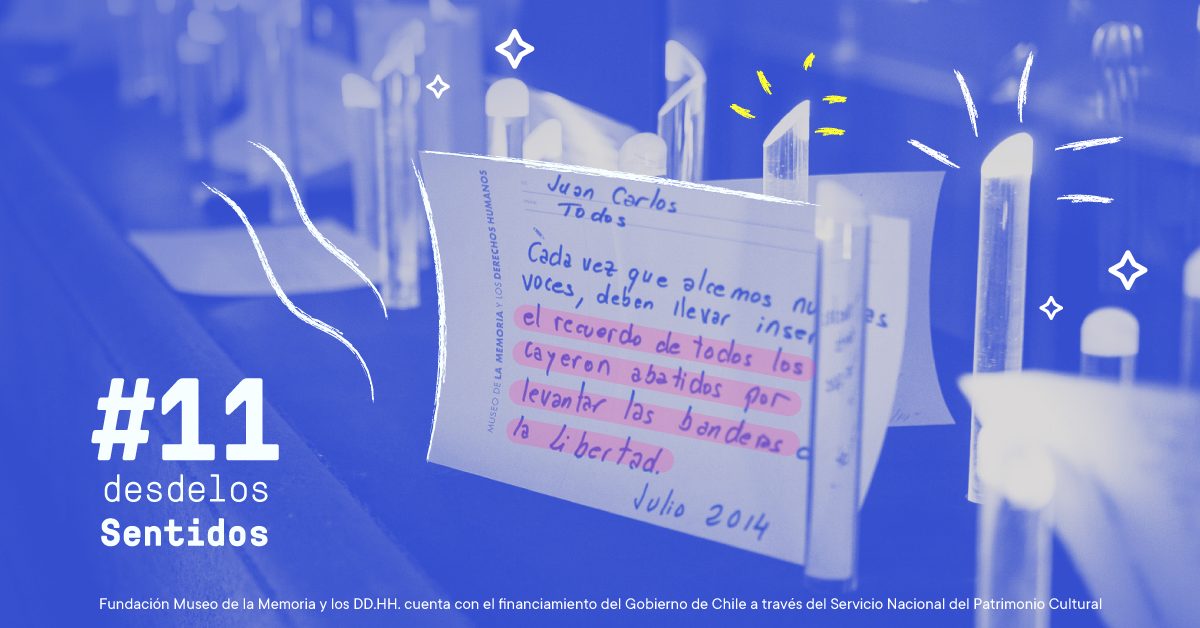 MUSEO DE LA MEMORIA Y LOS DERECHOS HUMANOS
Juan Carlos
Todos
Cada vez que alcemos
voces, deben llevar
el recuerdo de todos los
cayeron abatidos por
levantar las banderas
la libertad.
Julio 2014
#11
desdelos
Sentidos
Fundación Museo de la Memoria y los DD.HH. cuenta con el financiamiento del Gobierno de Chile a través del Servicio Nacional del Patrimonio Cultural